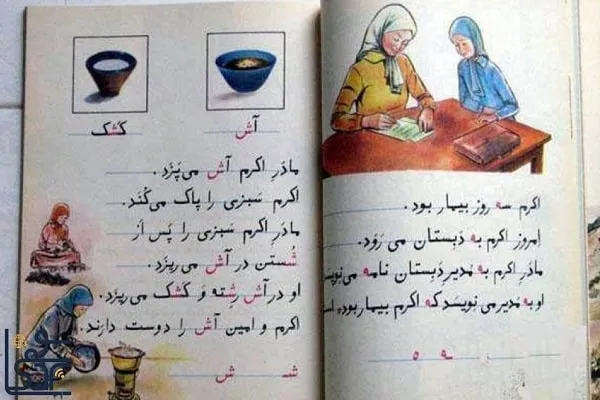 آش
کَشک
مادَرِ اکرم آش می‌پَزَد.
اکرم سَبزی را پاک می‌کُنَد.
مادَرِ اکرم سَبزی را پَس اَز
شُستن در آش می‌ریزد.
او در آش رِشته وَ کَشک می‌ریزد.
اکرم و امین آش را دوست دارند.
شـ ش
اکرم سه روز بیمار بود.
امروز اکرم به دَبستان می‌رَوَد.
مادَرِ اکرم به مُدیرِ دَبِستان نامه می‌نِویسَد
او به مُدیر می‌نِویسَد که اکرم بیمار بوده است
ه ه